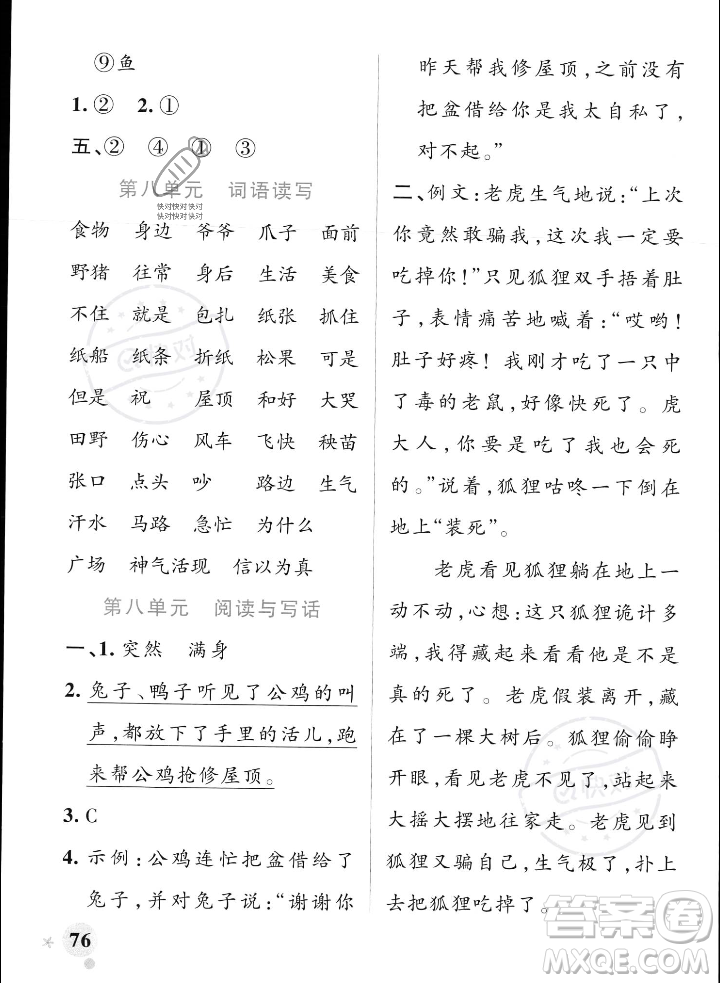 ⑨鱼
1.② 2.①
五、② ④ ① ③
第八单元 词语读写
快对快对快对
快对快对快对
食物 身边 爷爷 爪子 面前
野猪 往常 身后 生活 美食
不住 就是 包扎 纸张 抓住
纸船 纸条 折纸 松果 可是
但是 祝 屋顶 和好 大哭
田野 伤心 风车 飞快 秧苗
张口 点头 吵 路边 生气
汗水 马路 急忙 为什么
广场 神气活现 信以为真
第八单元 阅读与写话
一、1. 突然 满身
2. 兔子、鸭子听见了公鸡的叫
声,都放下了手里的活儿,跑
来帮公鸡抢修屋顶。
3. C
4. 示例:公鸡连忙把盆借给了
兔子,并对兔子说:“谢谢你
76
昨天帮我修屋顶,之前没有
把盆借给你是我太自私了,
对不起。”
二、例文:老虎生气地说:“上次
你竟然敢骗我,这次我一定要
吃掉你!”只见狐狸双手捂着肚
子,表情痛苦地喊着:“哎哟!
肚子好疼!我刚才吃了一只中
了毒的老鼠,好像快死了。虎
大人,您要是吃了我也会死
的。”说着,狐狸咕咚一下倒在
地上“装死”。
老虎看见狐狸躺在地上一
动不动,心想:这只狐狸诡计多
端,我得藏起来看看他是不是
真的死了。老虎假装离开,藏
在了一棵大树后。狐狸偷偷睁
开眼,看见老虎不见了,站起来
大摇大摆地往家走。老虎见到
狐狸又骗自己,生气极了,扑上
去把狐狸吃掉了。
答案圈
MXQE.COM